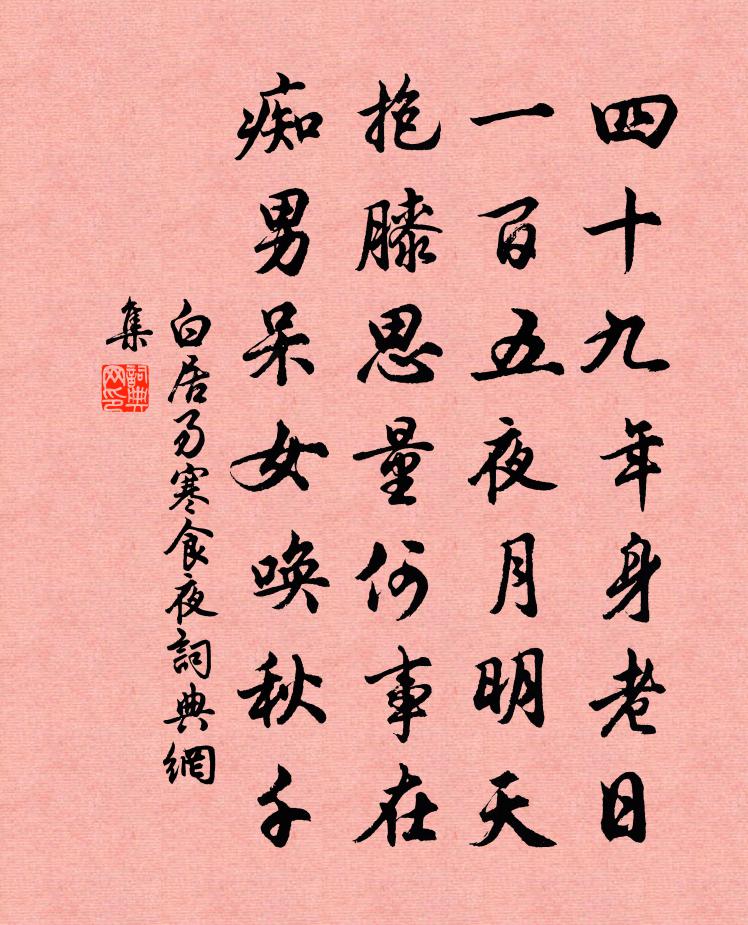 四十九年身老日
一百五夜月明天
抱膝思量何事在
痴男呆女唤秋千
白居易寒食夜詞典網
集
詞典
网印